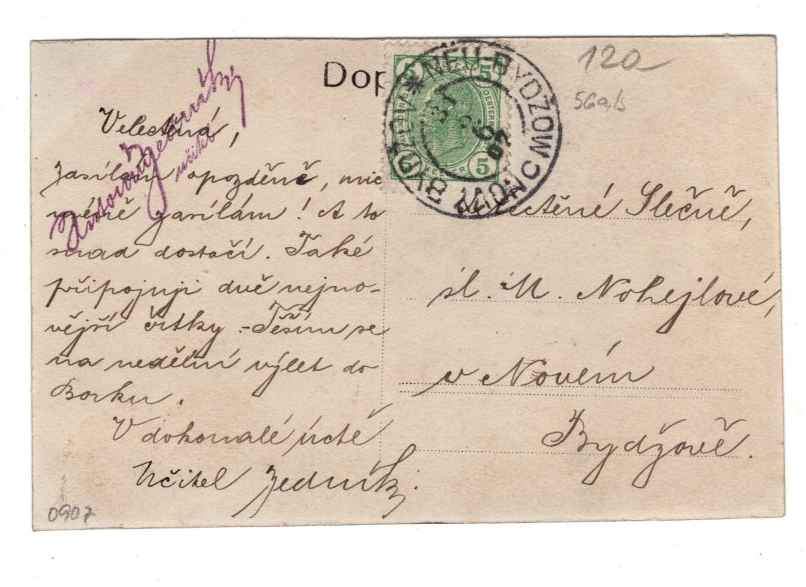 Dop
120
56a/b
NEU BYDŽOW
NOVÝ BYDŽOV
5 5
5
učitel
Velectěná,
zasílám opozděně, nic
méně zasílám! A to
snad dostačí. Také
připojuji dvě nejno-
vější črtky. - Těším se
na nedělní výlet do
Borku.
V dokonalé úctě
Učitel
Velectěné Slečně,
sl. M. Nohejlové,
v Novém
Bydžově.
0907